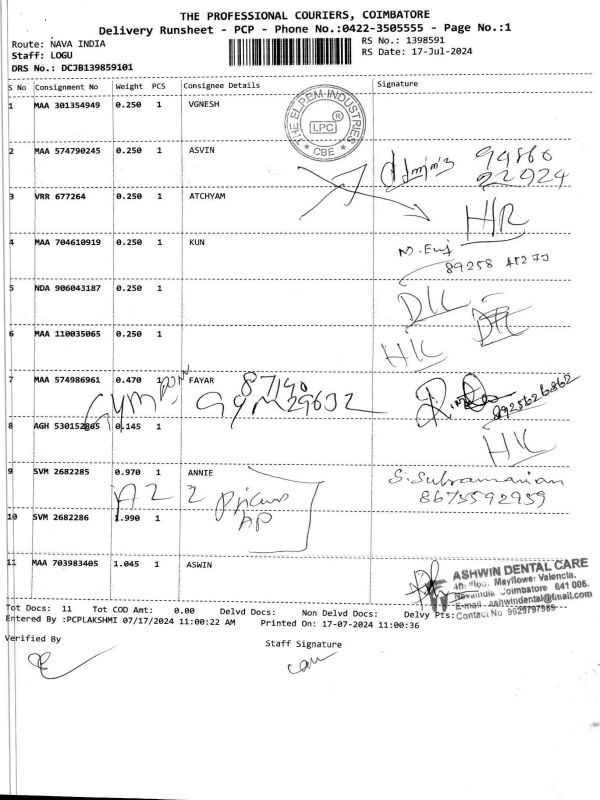 THE PROFESSIONAL COURIERS, COIMBATORE
Delivery Runsheet - PCP - Phone No.:0422-3505555 - Page No.:1
Route: NAVA INDIA
RS No.: 1398591
Staff: LOGU
RS Date: 17-Jul-2024
DRS No.: DCJB139859101
S No Consignment No Weight PCS Consignee Details Signature
1 MAA 301354949 0.250 1 VGNESH
THE ELPEM INDUSTRIES LPC ® CBE
2 MAA 574790245 0.250 1 ASVIN
94860
22924
3 VRR 677264 0.250 1 ATCHYAM
HR
4 MAA 704610919 0.250 1 KUN
89258
5 NDA 906043187 0.250 1
6 MAA 110035065 0.250 1
7 MAA 574986961 0.470 1 FAYAR
87140
29632
8925626862
8 AGH 530152865 0.145 1
9 SVM 2682285 0.970 1 ANNIE
S. Subramanian
8675592959
10 SVM 2682286 1.990 1
AP
11 MAA 703983405 1.045 1 ASWIN
ASHWIN DENTAL CARE
4th Floo. Mayflower Valencia,
Navaindia Coimbatore 641 006.
E-mail: ashwindental@gmail.com
Contact No 9629797989
Tot Docs: 11 Tot COD Amt: 0.00 Delvd Docs: Non Delvd Docs: Delvy Pts:
Entered By :PCPLAKSHMI 07/17/2024 11:00:22 AM Printed On: 17-07-2024 11:00:36
Verified By
Staff Signature